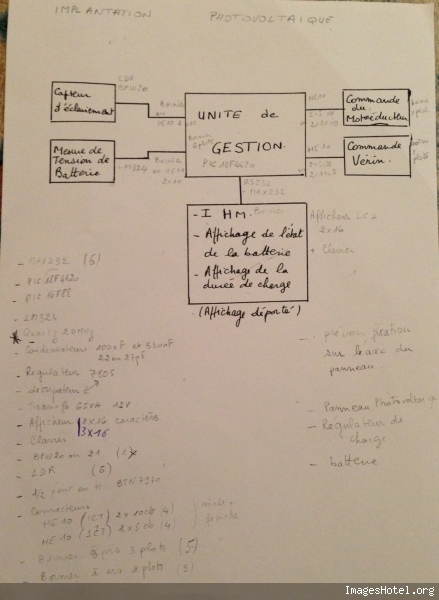 IMPLANTATION PHOTOVOLTAIQUE
Capteur
d'éclairement
LDR
BPW20
UNITE de
GESTION.
PIC18F4620
HE10
Commande
du
Motoréducteur
Mesure de
Tension de
Batterie
LM324
HE10
Commande
Vérin.
RS232
MAX232
- I HM.
- Affichage de l'état
de la batterie
- Affichage de la
durée de charge
(Affichage déporté)
Afficheur LCD
2x16
+ Clavier
- MAX232 (6)
- PIC 18F4620
- PIC 16F88
- LM324
* Quartz 20MHz
- Condensateurs 100nF et 330nF
22 ou 27pF
- Régulateur 7805
- Transfo 12V
- Afficheur 2x16 caractères
3x16
- Clavier
- BPW20 ou 21
- LDR (6)
- 1/2 pont en H BTN7970
- Connecteurs
HE10 2x10cts (4)
HE10 2x5cts (4)
- Bornier 3 plots (5)
- Bornier 2 plots (5)
- prévoir fixation
sur le axe du
panneau
- Panneau Photovoltaïq
- Régulateur de
charge
- batterie
ImagesHotel.org